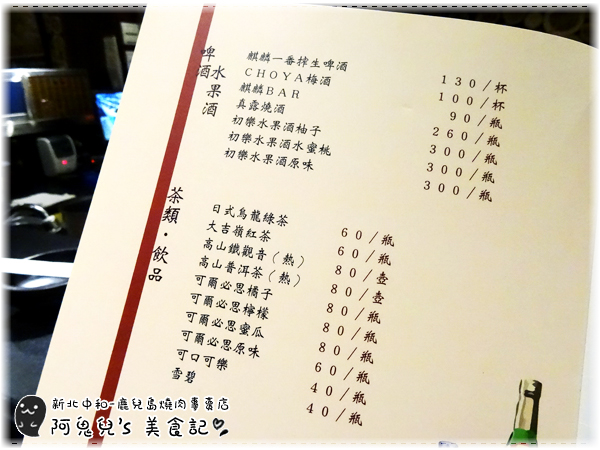 啤酒
水果酒
麒麟一番榨生啤酒 130/杯
CHOYA梅酒 100/杯
麒麟BAR 90/瓶
真露燒酒 260/瓶
初樂水果酒柚子 300/瓶
初樂水果酒水蜜桃 300/瓶
初樂水果酒原味 300/瓶
茶類·飲品
日式烏龍綠茶 60/瓶
大吉嶺紅茶 60/瓶
高山鐵觀音(熱) 80/壺
高山普洱茶(熱) 80/壺
可爾必思橘子 80/瓶
可爾必思檸檬 80/瓶
可爾必思蜜瓜 80/瓶
可爾必思原味 60/瓶
可口可樂 40/瓶
雪碧 40/瓶
新北中和-鹿兒島燒肉專賣店
阿鬼兒's 美食記